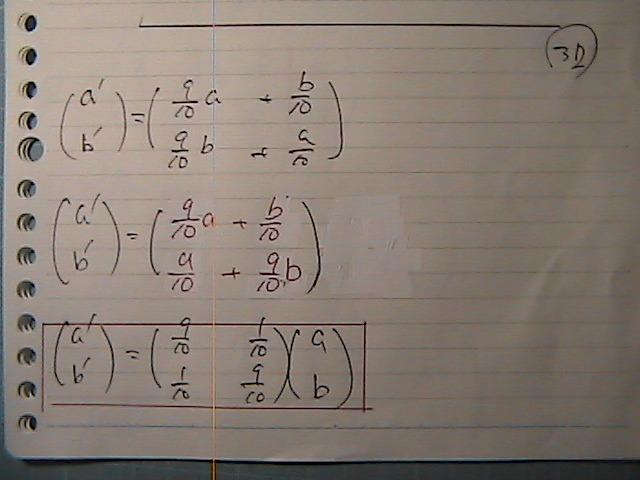 3D
(a′ b′) = (9/10 a + b/10
9/10 b + a/10)
(a′ b′) = (9/10 a + b/10
a/10 + 9/10 b)
(a′ b′) = (9/10 1/10
1/10 9/10) (a b)